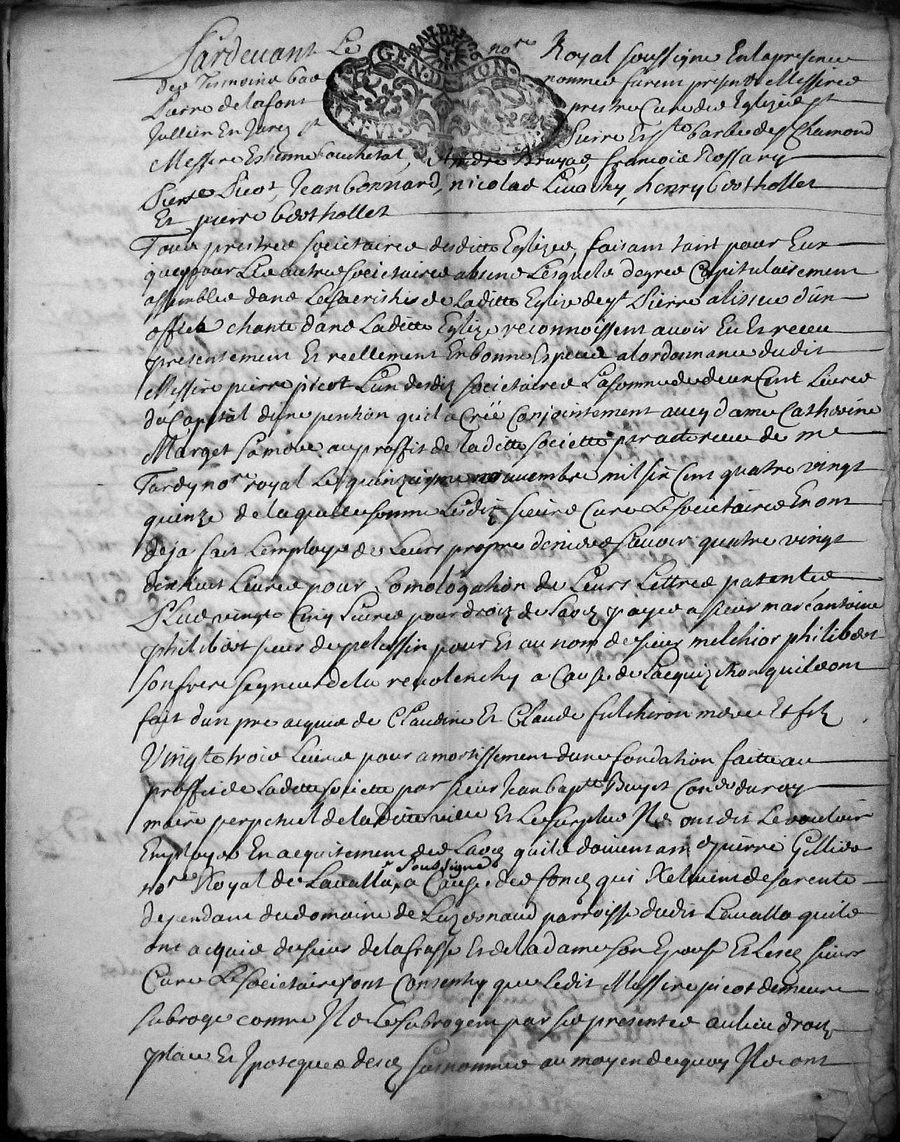 Pardevant Le no.re Royal soussigne En la presence
des Tesmoins bas nommes furent presents Messire
Pierre de la font prestre Cure des Eglizes st
Jullien En Jares st Pierre Et ste barbe de st Chamond
Messire Estienne bouchetal, Andre françois Rossary
Pierre Picot, Jean bonnard, nicolas Livachy, henry berthollet
Et pierre berthollet
Tous prestres societaires desdittes Eglizes, faisant tant pour Eux
que pour Les autres societaires absens Lesquels de gre Capitulairement
assembles dans La sacristie de Laditte Eglize de st Pierre a lissue dun
office chante dans Laditte Eglize reconnoissent avoir Eu Et receu
presentement Et reellement En bonnes Especes a lordonnance dudit
Messire pierre picot Lun desdits societaires La somme de deux Cent Livres
du Capital dune pention quil a Cree Conjointement avec dame Catherine
Marget sa mere au proffit de laditte societte par acte receu de me
Tardy no.re royal Le quinzieme novembre mil six Cent quatre vingt
quinze de laquelle somme Lesdits sieurs Cure Et societaires En ont
deja fait Lemploye de Leurs propres deniers scavoir quatre vingt
dix huit Livres pour Lomologation de Leurs Lettres patentes
Plus vingt Cinq Livres pour droits de Laods payes a sieur marc antoine
philibert sieur de pelussin pour Et au nom de sieur melchior philibert
son frere seigneur de la a Cause de Lacquizition quils ont
fait dun pre acquis de Claudine Et Claude fulchiron mere Et fils
Vingt trois Livres pour amortissement dune fondation faitte au
proffit de Laditte societte par sieur Jean bap.te Con.er du roy
maire perpetuel de laditte ville Et Le surplus Ils ont dit Le vouloir
Employer En acquitement des Laods quils doivent a m.e pierre Gillier
no.re Royal de Lavalla, soussigne a Cause des fonds qui de sa rente
dependant du domaine de Luzernaud parroisse dudit Lavalla quils
ont acquis du sieur de la frasse Et de la dame son Epouse Et Lesd. sieurs
Cure Et societaires ont Consenty que Ledit Messire picot demeure
subroge comme Ils Le subrogent par ses presentes au lieu droit
place Et Ipoteque des susnommes au moyen de quoy Ils ont